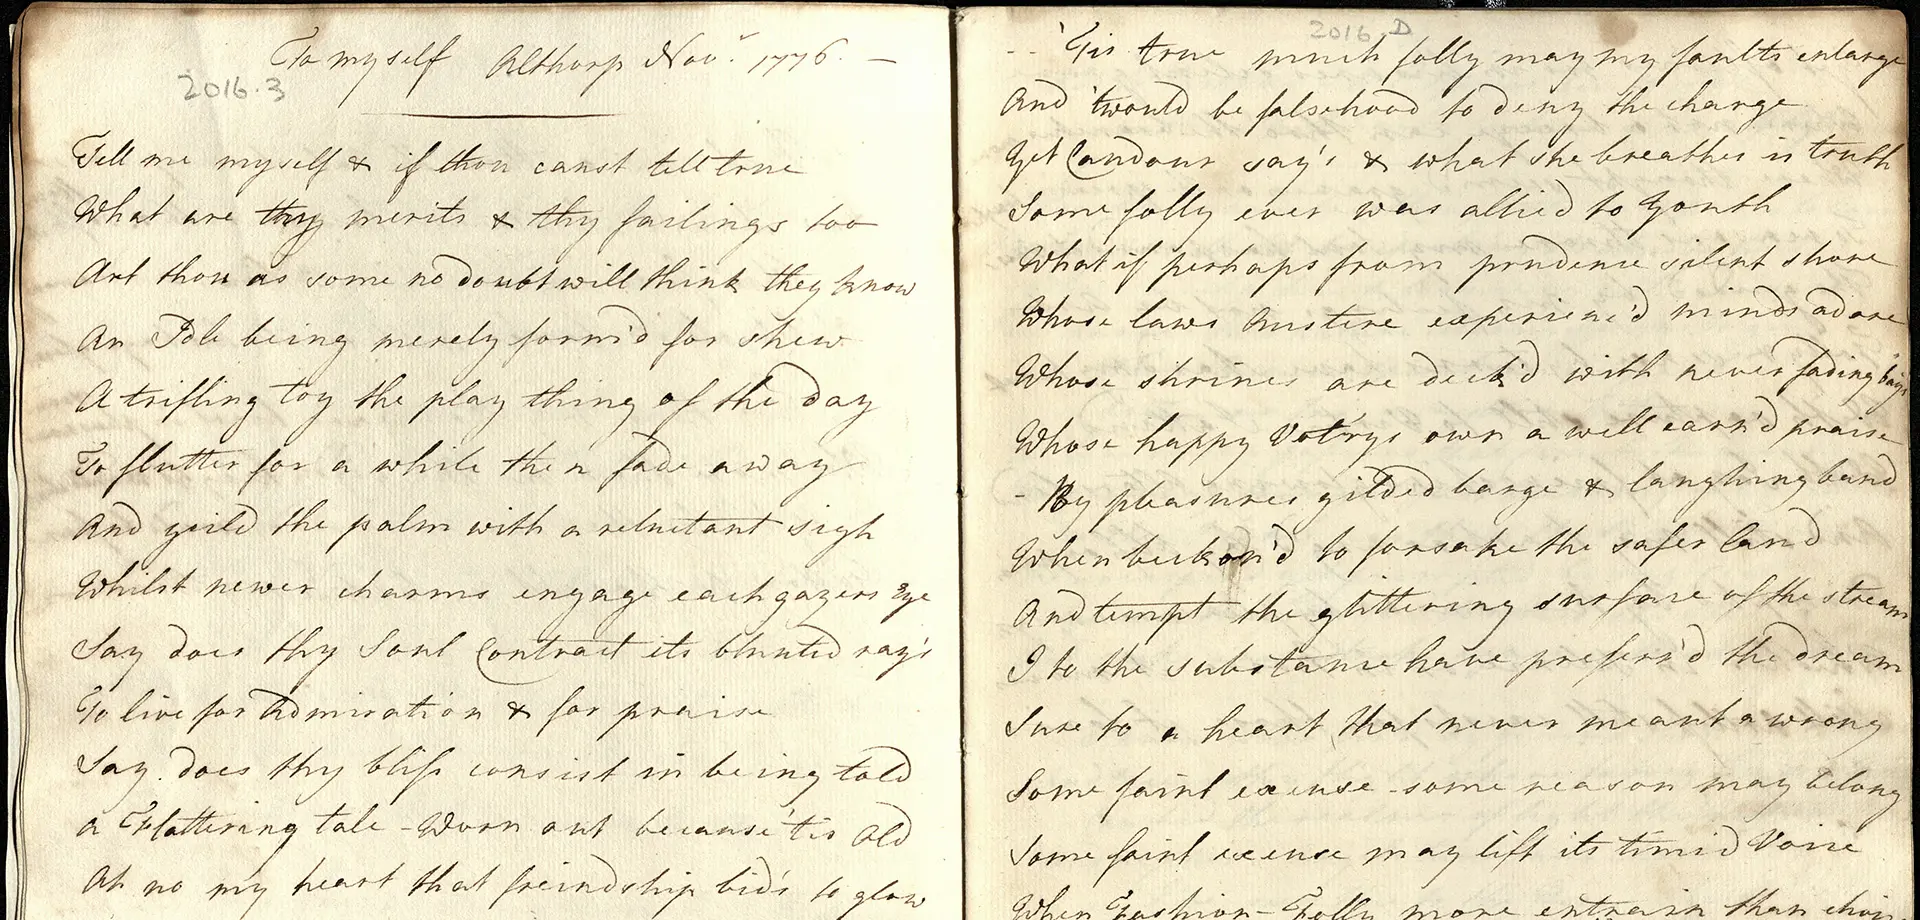 To myself Althorp Novr. 1776. —
2016.3
Tell me myself & if thou canst tell true
What are thy merits & thy failings too
Art thou as some no doubt will think they know
An Idle being merely form'd for shew
A trifling toy the play thing of the day
To flutter for a while then fade away
And yeild the palm with a reluctant sigh
Whilst newer charms engage each gazers Eye
Say does thy Soul Contract its blunted ray's
To live for admiration & for praise
Say does thy bliss consist in being told
a Flattering tale - Worn out because 'tis Old
Ah no my heart that freindship bid's to glow
2016.D
-- 'Tis true much folly may my faults enlarge
And 'twould be falsehood to deny the charge
Yet Candour say's & what she breathes is truth
Some folly ever was allied to Youth
What if perhaps from prudence silent shore
Whose laws Austere experienc'd minds adore
Whose shrines are deck'd with never fading bays
Whose happy Vot'rys own a well earn'd praise
- By pleasures gilded barge & laughing band
When beckon'd to forsake the safer land
And tempt the glittering surface of the stream
I to the substance have preferr'd the dream
Sure to a heart that never meant a wrong
Some faint excuse - some reason may belong
Some faint excuse may lift its timid Voice
When Fashion - Folly more entrain than choice